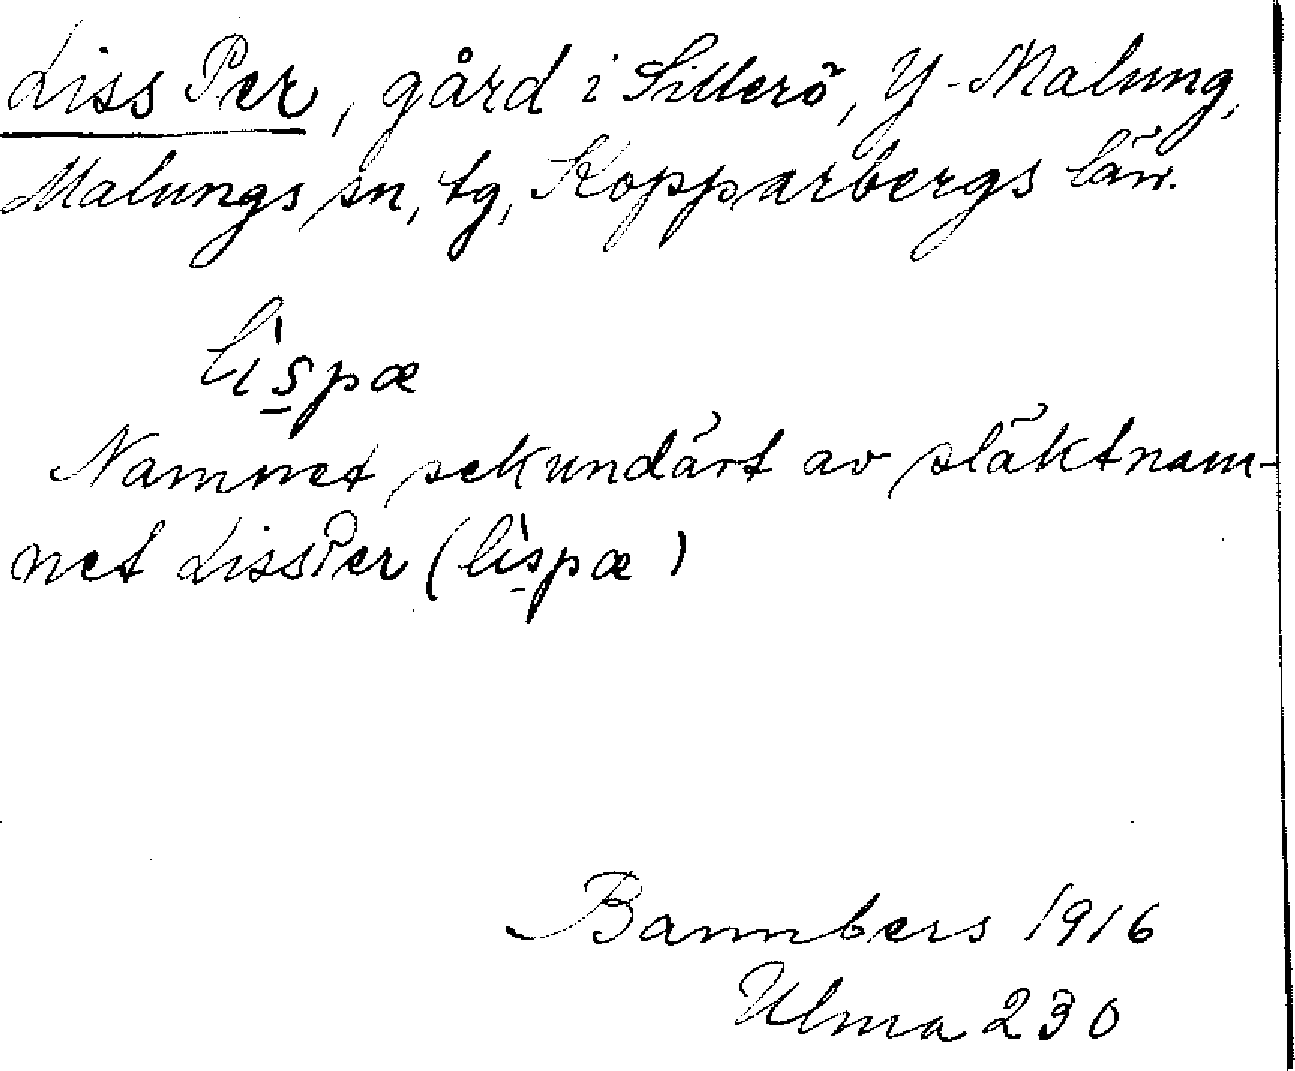 Liss Per, gård i Sillerö, Y-Malung,
Malungs sn, tg, Kopparbergs län.
li`s̲pæ
Namnet sekundärt av släktnam-
net LissPer (li`s̲pæ)
Bannbers 1916
Ulma 230